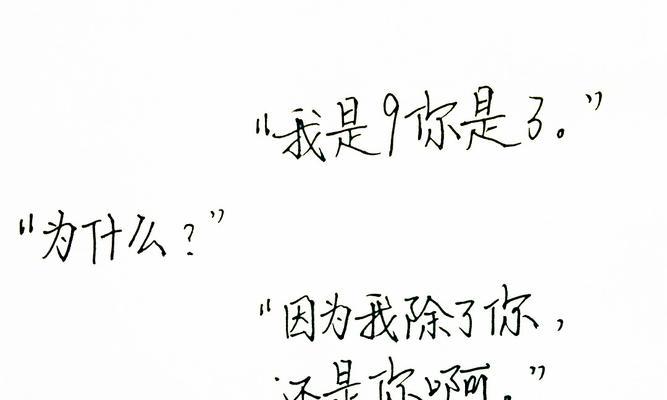 “我是9你是3。”
“为什么？”
“因为我除了你，
还是你啊。”